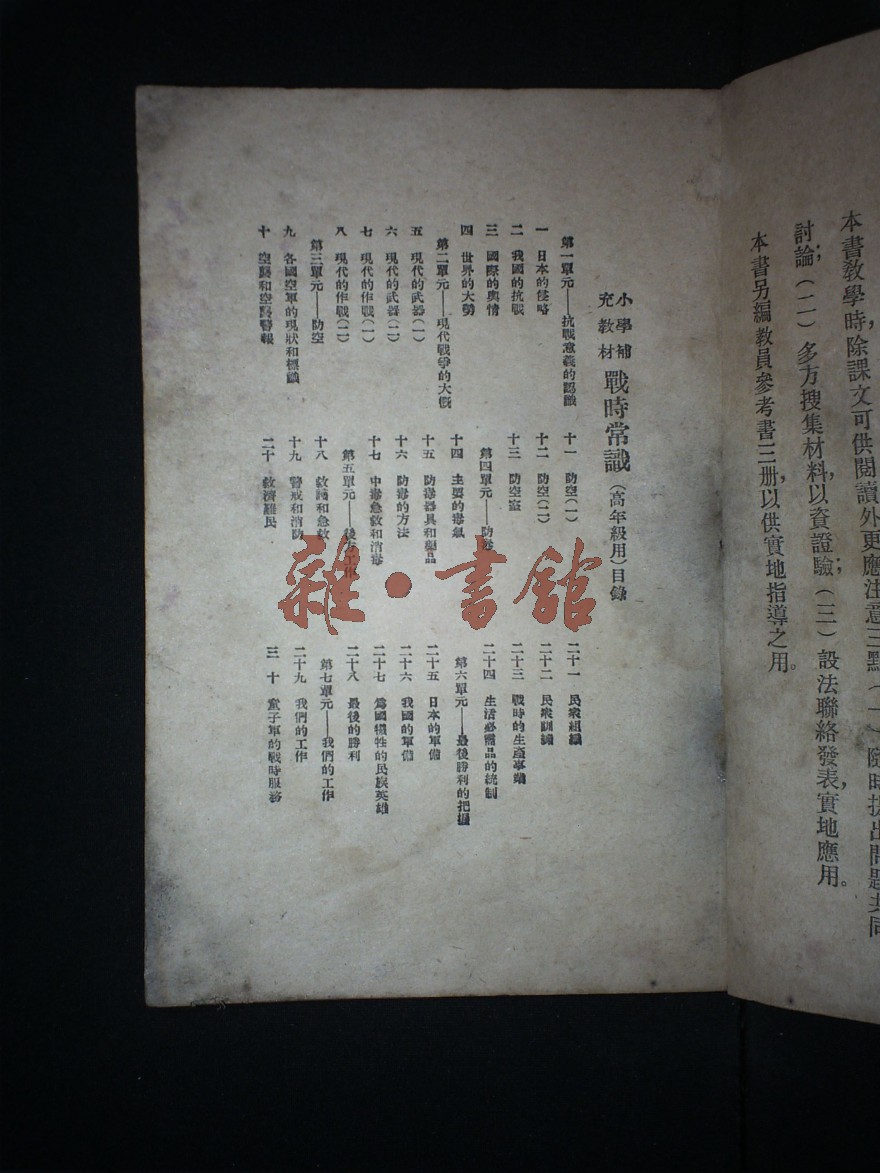 本書教學時除課文可供閱讀外更應注意三點(一)隨時提出問題共同
討論;(二)多方搜集材料,以資證驗;(三)設法聯絡發表,實地應用。
本書另編教員參考書三册,以供實地指導之用。
小學補充教材 戰時常識(高年級用)目錄
第一單元——抗戰意義的認識
一 日本的侵略
二 我國的抗戰
三 國際的輿情
四 世界的大勢
第二單元——現代戰爭的大概
五 現代的武器(一)
六 現代的武器(二)
七 現代的作戰(一)
八 現代的作戰(二)
第三單元——防空
九 各國空軍的現狀和標識
十 空襲和空襲警報
十一 防空(一)
十二 防空(二)
十三 防空室
第四單元——防毒
十四 主要的毒氣
十五 防毒器具和藥品
十六 防毒的方法
十七 中毒急救和消毒
第五單元——後方工作
十八 救護和急救
十九 警戒和消防
二十 救濟難民
二十一 民衆組織
二十二 民衆訓練
二十三 戰時的生產事業
二十四 生活必需品的統制
第六單元——最後勝利的把握
二十五 日本的軍備
二十六 我國的軍備
二十七 爲國犧牲的民族英雄
二十八 最後的勝利
第七單元——我們的工作
二十九 我們的工作
三十 童子軍的戰時服務
雜·書館